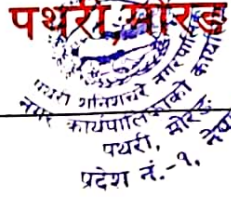 पथरी, मोरङ
पथरी शनिश्चरे नगरपालिका
नगर कार्यपालिकाको कार्या
पथरी, मोरङ, नेपा
प्रदेश नं.-१,